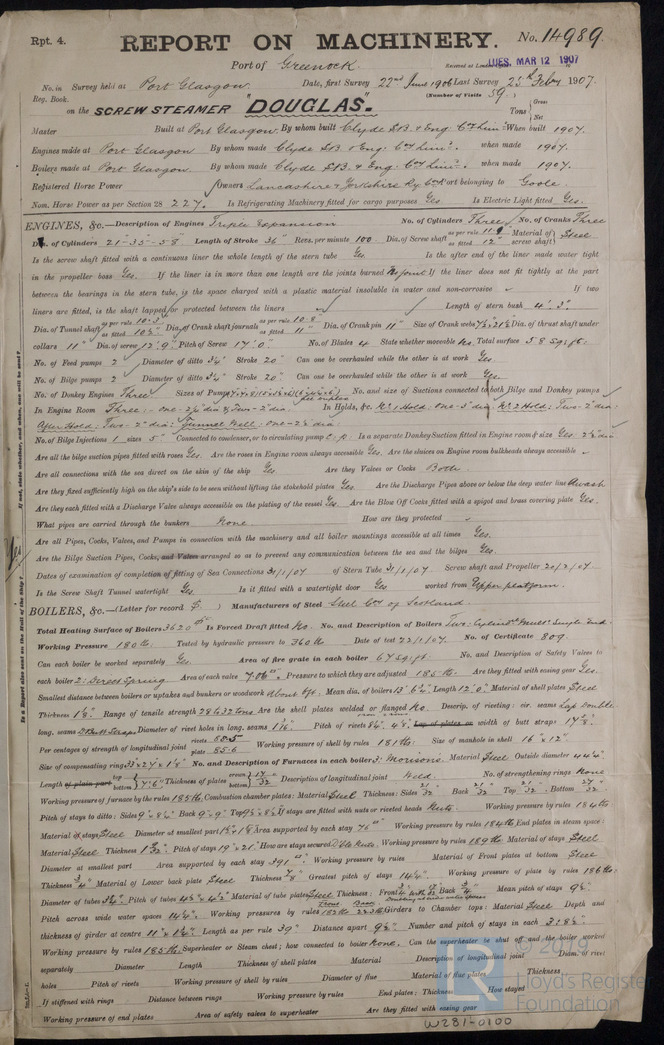 Rpt. 4.
REPORT ON MACHINERY. No. 14989.
Port of Greenock. Received at London TUES. MAR 12 1907
No. in Survey held at Port Glasgow. Date, first Survey 22nd June 1906 Last Survey 25th Feby 1907.
Reg. Book. (Number of Visits 59)
on the SCREW STEAMER "DOUGLAS". Tons Gross Net
Master Built at Port Glasgow. By whom built Clyde S.B. & Eng. Coy Limd. When built 1907.
Engines made at Port Glasgow By whom made Clyde S.B. & Eng. Coy Limd. when made 1907.
Boilers made at Port Glasgow By whom made Clyde S.B. & Eng. Coy Limd. when made 1907.
Registered Horse Power Owners Lancashire & Yorkshire Ry Coy Port belonging to Goole.
Nom. Horse Power as per Section 28 227. Is Refrigerating Machinery fitted for cargo purposes Yes. Is Electric Light fitted Yes.
ENGINES, &c.—Description of Engines Triple Expansion No. of Cylinders Three No. of Cranks Three
Dia. of Cylinders 21-35-58 Length of Stroke 36" Revs. per minute 100 Dia. of Screw shaft as per rule 11.9" as fitted 12" Material of screw shaft Steel
Is the screw shaft fitted with a continuous liner the whole length of the stern tube Yes Is the after end of the liner made water tight
in the propeller boss Yes. If the liner is in more than one length are the joints burned No joint If the liner does not fit tightly at the part
between the bearings in the stern tube, is the space charged with a plastic material insoluble in water and non-corrosive If two
liners are fitted, is the shaft lapped or protected between the liners Length of stern bush 4' 3"
Dia. of Tunnel shaft as per rule 10.3" as fitted 10½" Dia. of Crank shaft journals as per rule 10.8" as fitted 11" Dia. of Crank pin 11" Size of Crank webs Dia. of thrust shaft under
collars 11" Dia. of screw 12' 9" Pitch of Screw 17' 0" No. of Blades 4 State whether moveable No. Total surface 58 sq. ft.
No. of Feed pumps 2 Diameter of ditto 3¼" Stroke 20" Can one be overhauled while the other is at work Yes.
No. of Bilge pumps 2 Diameter of ditto 3¼" Stroke 20" Can one be overhauled while the other is at work Yes.
No. of Donkey Engines Three Sizes of Pumps No. and size of Suctions connected to both Bilge and Donkey pumps
In Engine Room Three:- One 2½" dia & Two 2" dia. In Holds, &c. No. 1 Hold: One - 3" dia. No. 2 Hold: Two - 2" dia
After Hold: Two - 2" dia: Tunnel Well: One - 2½" dia
No. of Bilge Injections 1 sizes 5" Connected to condenser, or to circulating pump C.p. Is a separate Donkey Suction fitted in Engine room & size Yes. 2½" dia
Are all the bilge suction pipes fitted with roses Yes. Are the roses in Engine room always accessible Yes. Are the sluices on Engine room bulkheads always accessible
Are all connections with the sea direct on the skin of the ship Yes Are they Valves or Cocks Both
Are they fixed sufficiently high on the ship's side to be seen without lifting the stokehold plates Yes Are the Discharge Pipes above or below the deep water line Awash
Are they each fitted with a Discharge Valve always accessible on the plating of the vessel Yes Are the Blow Off Cocks fitted with a spigot and brass covering plate Yes
What pipes are carried through the bunkers None How are they protected
Are all Pipes, Cocks, Valves, and Pumps in connection with the machinery and all boiler mountings accessible at all times Yes.
Are the Bilge Suction Pipes, Cocks, and Valves arranged so as to prevent any communication between the sea and the bilges Yes.
Dates of examination of completion of fitting of Sea Connections 31/1/07 of Stern Tube 31/1/07 Screw shaft and Propeller 20/2/07
Is the Screw Shaft Tunnel watertight Yes Is it fitted with a watertight door Yes worked from Upper platform.
BOILERS, &c.—(Letter for record S.) Manufacturers of Steel Steel Coy of Scotland
Total Heating Surface of Boilers 3620 Is Forced Draft fitted No. No. and Description of Boilers Two: Cylindl Mult: Single End.
Working Pressure 180 lb. Tested by hydraulic pressure to 360 lb Date of test 22/1/07. No. of Certificate 809.
Can each boiler be worked separately Yes. Area of fire grate in each boiler 67 sq. ft. No. and Description of Safety Valves to
each boiler 2: Direct Spring Area of each valve 7.06 Pressure to which they are adjusted 185 lb. Are they fitted with easing gear Yes.
Smallest distance between boilers or uptakes and bunkers or woodwork About 6 ft. Mean dia. of boilers 13' 6½" Length 12' 0" Material of shell plates Steel
Thickness 1⅛" Range of tensile strength 28 & 32 tons Are the shell plates welded or flanged No. Descrip. of riveting: cir. seams Lap Double
long. seams D Butt Straps Diameter of rivet holes in long. seams Pitch of rivets Lap of plates or width of butt straps 17⅞"
Per centages of strength of longitudinal joint rivets plate 85.6 Working pressure of shell by rules 181 lb: Size of manhole in shell 16" x 12"
Size of compensating ring No. and Description of Furnaces in each boiler 3. Morisons. Material Steel Outside diameter
Length of plain part top bottom 7' 6" Thickness of plates crown bottom 17/32 Description of longitudinal joint Weld. No. of strengthening rings None
Working pressure of furnace by the rules 185 lb. Combustion chamber plates: Material Steel Thickness: Sides Back Top Bottom
Pitch of stays to ditto: Sides Back Top If stays are fitted with nuts or riveted heads Nuts. Working pressure by rules 184 lb
Material of stays Steel Diameter at smallest part Area supported by each stay 76 Working pressure by rules 184 lb End plates in steam space:
Material Steel Thickness Pitch of stays 19" x 21" How are stays secured D. Nuts. Working pressure by rules 189 lb Material of stays Steel
Diameter at smallest part Area supported by each stay 391 Working pressure by rules Material of Front plates at bottom Steel
Thickness ¾" Material of Lower back plate Steel Thickness ⅞" Greatest pitch of stays 14¼" Working pressure of plate by rules 186 lb:
Diameter of tubes 3¼" Pitch of tubes Material of tube plates Steel Thickness: Front Back ¾" Mean pitch of stays 9½"
Pitch across wide water spaces 14¼". Working pressures by rules Girders to Chamber tops: Material Steel. Depth and
thickness of girder at centre Length as per rule 39" Distance apart 9½" Number and pitch of stays in each 3: 8½"
Working pressure by rules 185 lb. Superheater or Steam chest; how connected to boiler None. Can the superheater be shut off and the boiler worked
separately Diameter Length Thickness of shell plates Material Description of longitudinal joint Diam. of rivet
holes Pitch of rivets Working pressure of shell by rules Diameter of flue Material of flue plates Thickness
If stiffened with rings Distance between rings Working pressure by rules End plates: Thickness How stayed
Working pressure of end plates Area of safety valves to superheater Are they fitted with easing gear
W281-0100
If not, state whether, and when, one will be sent?
Is a Report also sent on the Hull of the Ship?
Yes
© 2019
Lloyd's Register
Foundation